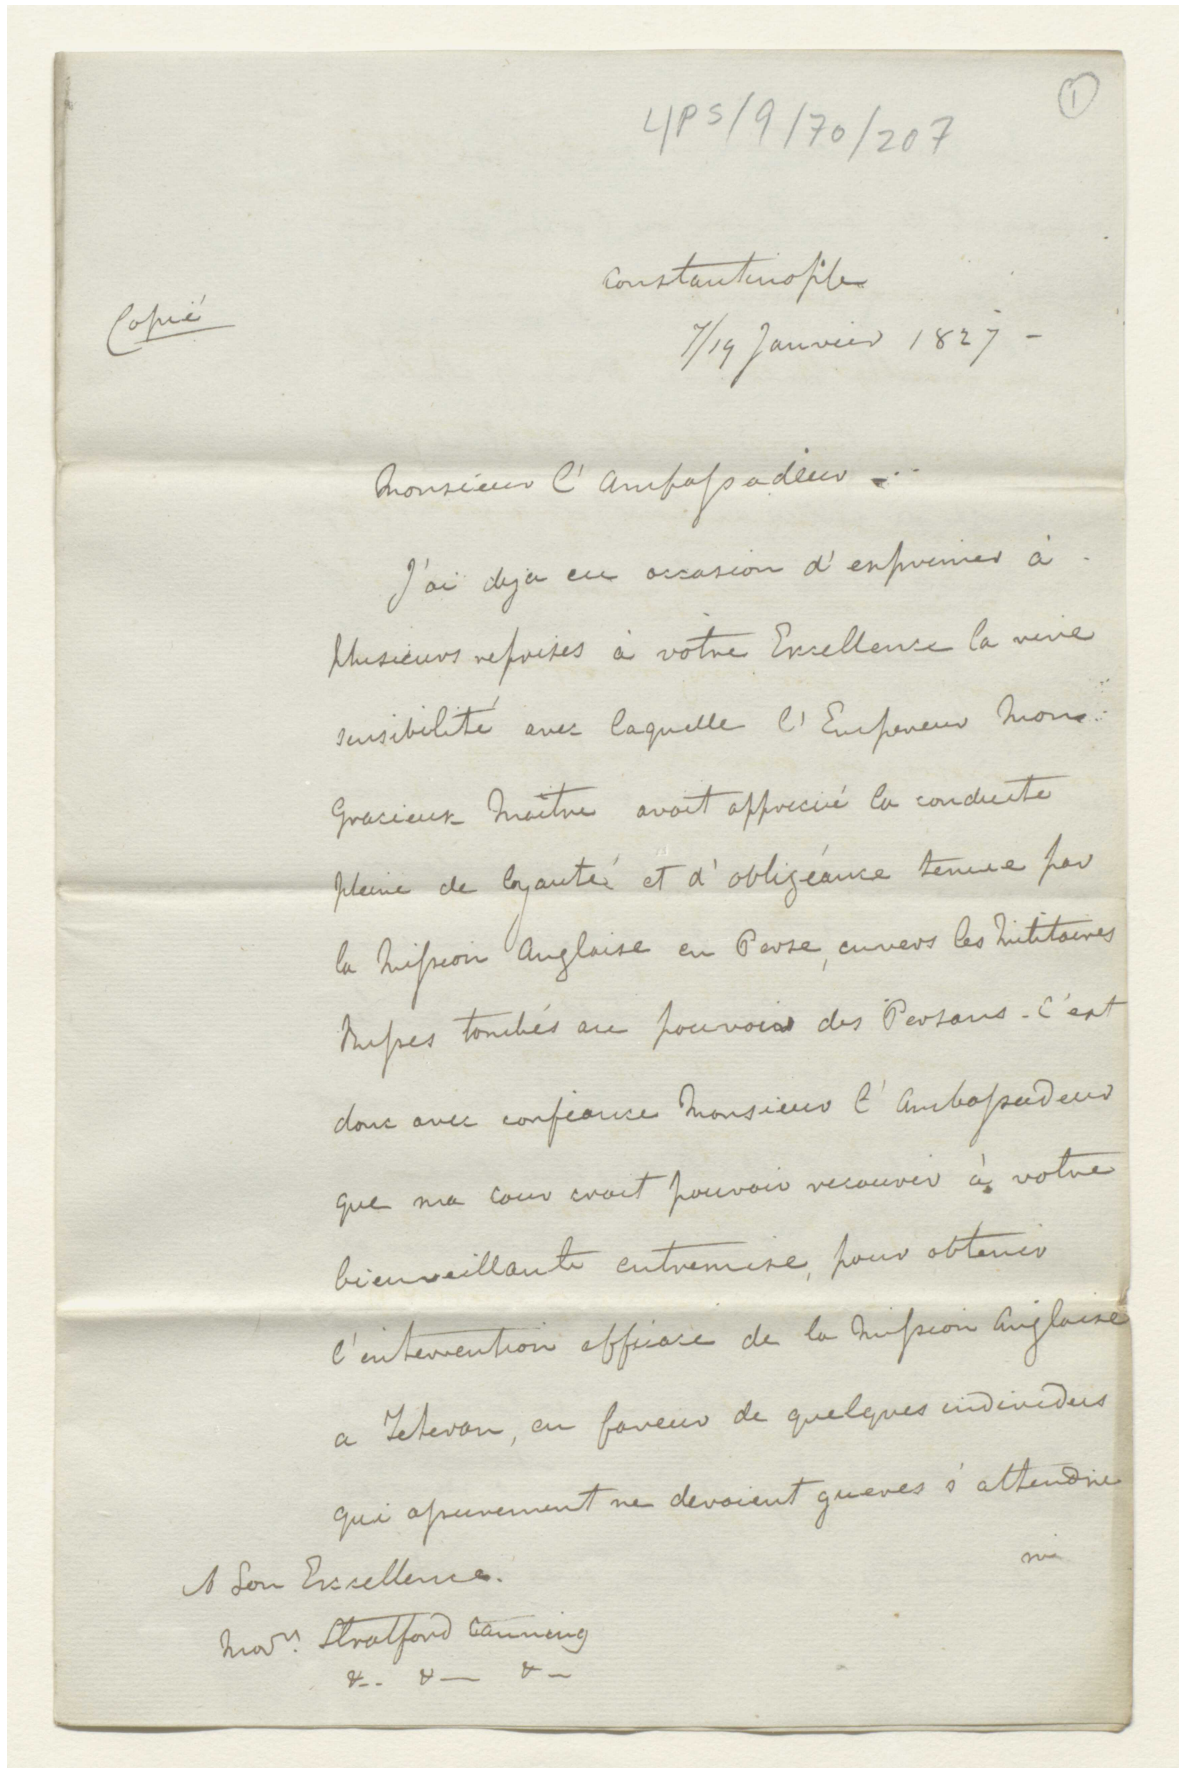 ①
L/PS/9/70/207
Constantinople
7/19 Janvier 1827 -
Copié
Monsieur l'Ambassadeur -
J'ai deja eu occasion d'exprimer à
plusieurs reprises à votre Excellence la vive
sensibilité avec laquelle l'Empereur Mon
Gracieux Maître avait apprecié la conduite
pleine de loyauté et d'obligéance tenue par
la Mission Anglaise en Perse, envers les Militaires
Russes tombés au pouvoir des Persans - C'est
donc avec confiance Monsieur l'Ambassadeur
que ma cour croit pouvoir recourir à votre
bienveillante entremise, pour obtenir
l'intervention efficace de la Mission Anglaise
a Teheran, en faveur de quelques individus
qui assurement ne devaient gueres s'attendre
ni
A Son Excellence.
Stratford Canning
&-. &- &-